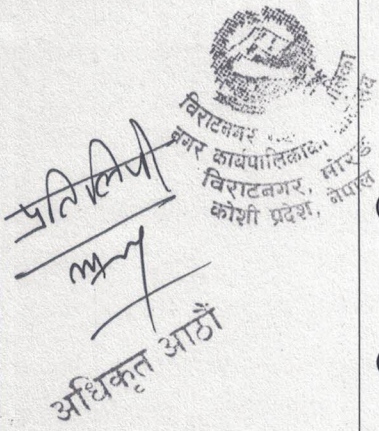 विराटनगर
नगर कार्यपालिकाको
विराटनगर, मोरङ
कोशी प्रदेश, नेपाल
प्रतिलिपी
अधिकृत आठौं